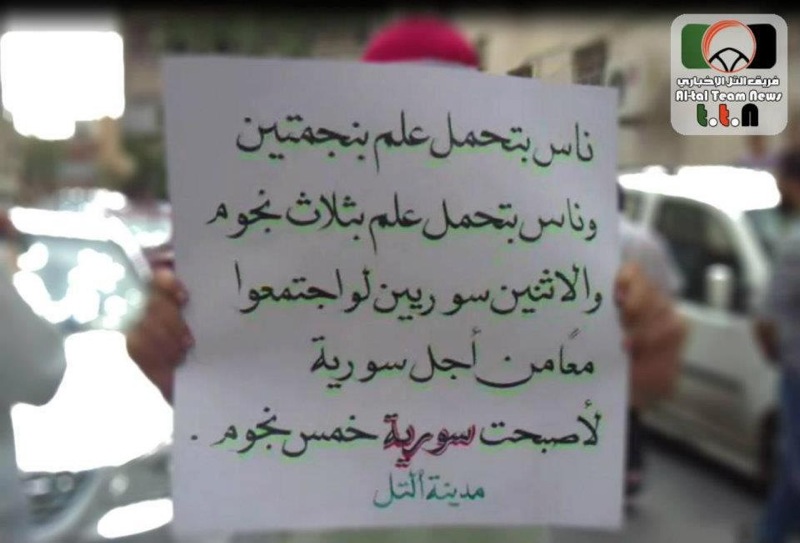 فريق التل الاخباري
Al-tal Team News
t.t.n
ناس بتحمل علم بنجمتين
وناس بتحمل علم بثلاث نجوم
والاثنين سوريين لو اجتمعوا
معًا من أجل سورية
لأصبحت سورية خمس نجوم .
مدينة التل